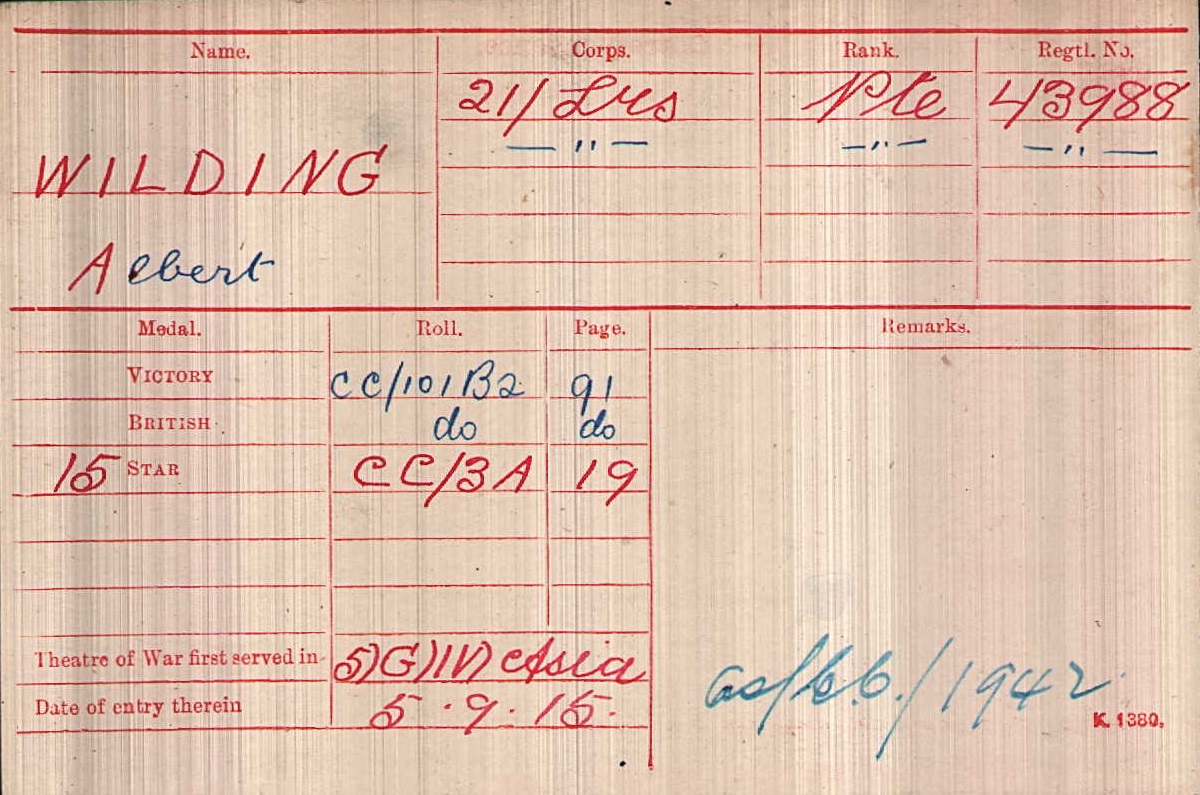 Name. Corps. Rank. Regtl. No.
21/ Lrs Pte 43988
— " — — " — — " —
WILDING
Albert
Medal. Roll. Page. Remarks.
VICTORY CC/101B2 91
BRITISH do do
15 STAR CC/3A 19
Theatre of War first served in 5)G)IV) Asia
Date of entry therein 5.9.15.
/1942
K. 1380.